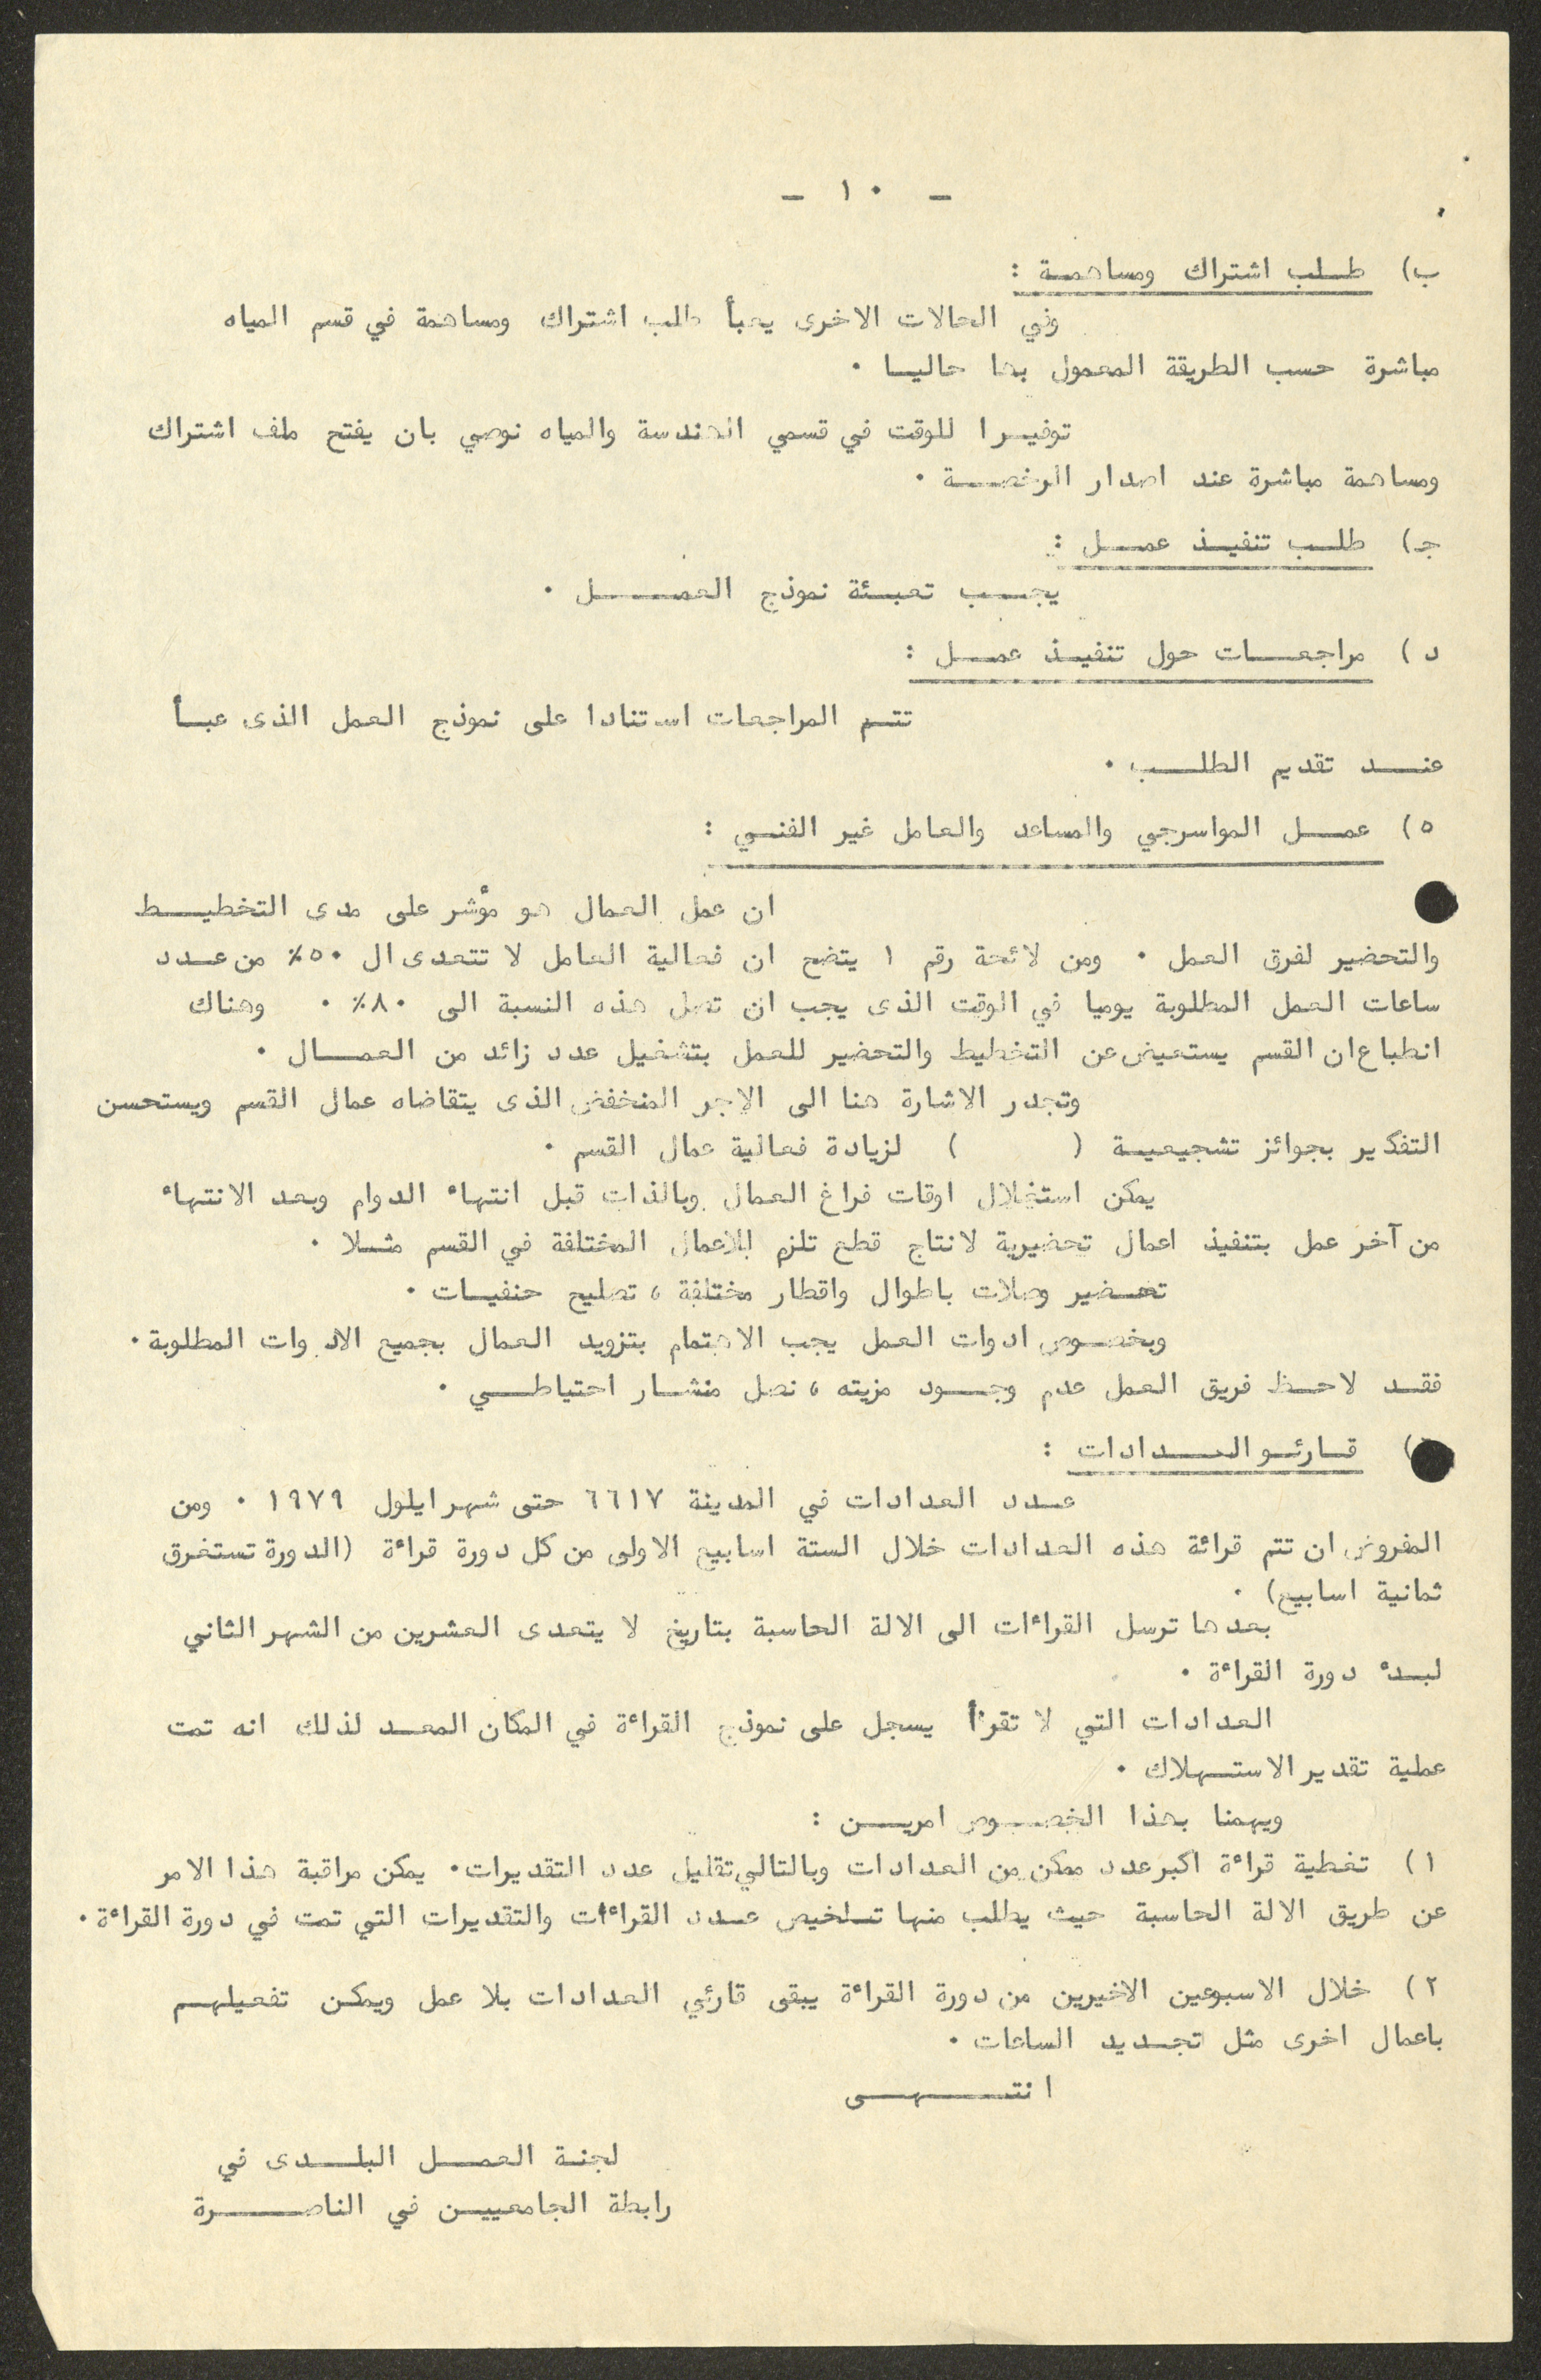 - ١٠ -
ب) طلب اشتراك ومساهمة :
وفي الحالات الاخرى يعبأ طلب اشتراك ومساهمة في قسم المياه
مباشرة حسب الطريقة المعمول بها حاليا ٠
توفيرا للوقت في قسمي الهندسة والمياه نوصي بان يفتح ملف اشتراك
ومساهمة مباشرة عند اصدار الرخصة ٠
ج) طلب تنفيذ عمل :
يجب تعبئة نموذج العمل ٠
د) مراجعات حول تنفيذ عمل :
تتم المراجعات استنادا على نموذج العمل الذى عبأ
عند تقديم الطلب ٠
٥) عمل المواسرجي والمساعد والعامل غير الفني :
ان عمل العمال هو مؤشر على مدى التخطيط
والتحضير لفرق العمل ٠ ومن لائحة رقم ١ يتضح ان فعالية العامل لا تتعدى ال ٥٠٪ من عدد
ساعات العمل المطلوبة يوميا في الوقت الذى يجب ان تصل هذه النسبة الى ٨٠٪ ٠ وهناك
انطباع ان القسم يستعيض عن التخطيط والتحضير للعمل بتشغيل عدد زائد من العمال ٠
وتجدر الاشارة هنا الى الاجر المنخفض الذى يتقاضاه عمال القسم ويستحسن
التفكير بجوائز تشجيعية ( ) لزيادة فعالية عمال القسم ٠
يمكن استغلال اوقات فراغ العمال وبالذات قبل انتهاء الدوام وبعد الانتهاء
من آخر عمل بتنفيذ اعمال تحضيرية لانتاج قطع تلزم للاعمال المختلفة في القسم مثلا ٠
تحضير وصلات باطوال واقطار مختلفة ، تصليح حنفيات ٠
وبخصوص ادوات العمل يجب الاهتمام بتزويد العمال بجميع الادوات المطلوبة ٠
فقد لاحظ فريق العمل عدم وجود مزيته ، نصل منشار احتياطي ٠
) قارئو العدادات :
عدد العدادات في المدينة ٦٦١٧ حتى شهر ايلول ١٩٧٩ ٠ ومن
المفروض ان تتم قرائة هذه العدادات خلال الستة اسابيع الاولى من كل دورة قراءة (الدورة تستغرق
ثمانية اسابيع) ٠
بعدها ترسل القراءات الى الالة الحاسبة بتاريخ لا يتعدى العشرين من الشهر الثاني
لبدء دورة القراءة ٠
العدادات التي لا تقرأ يسجل على نموذج القراءة في المكان المعد لذلك انه تمت
عملية تقدير الاستهلاك ٠
ويهمنا بهذا الخصوص امرين :
١) تغطية قراءة اكبر عدد ممكن من العدادات وبالتالي تقليل عدد التقديرات ٠ يمكن مراقبة هذا الامر
عن طريق الالة الحاسبة حيث يطلب منها تلخيص عدد القراءات والتقديرات التي تمت في دورة القراءة ٠
٢) خلال الاسبوعين الاخيرين من دورة القراءة يبقى قارئي العدادات بلا عمل ويمكن تفعيلهم
باعمال اخرى مثل تجديد الساعات ٠
انتهى
لجنة العمل البلدى في
رابطة الجامعيين في الناصرة